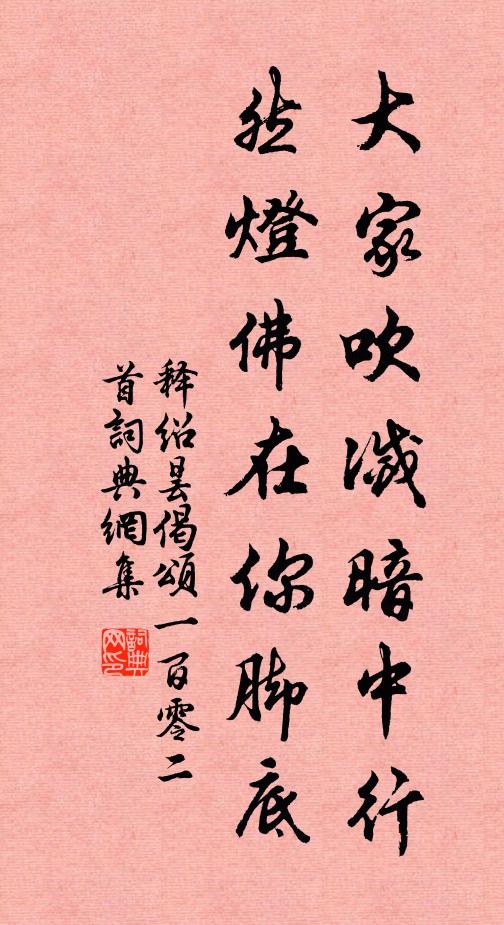 大家吹滅暗中行
然燈佛在你脚底
释绍昙偈頌一百零二
首詞典網集
詞典网印